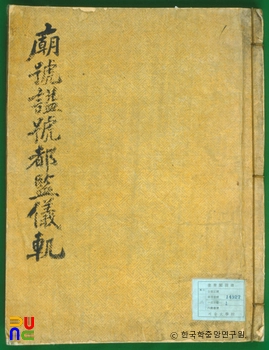 廟號諡號都監儀軌
UNC
© 한국학중앙연구원